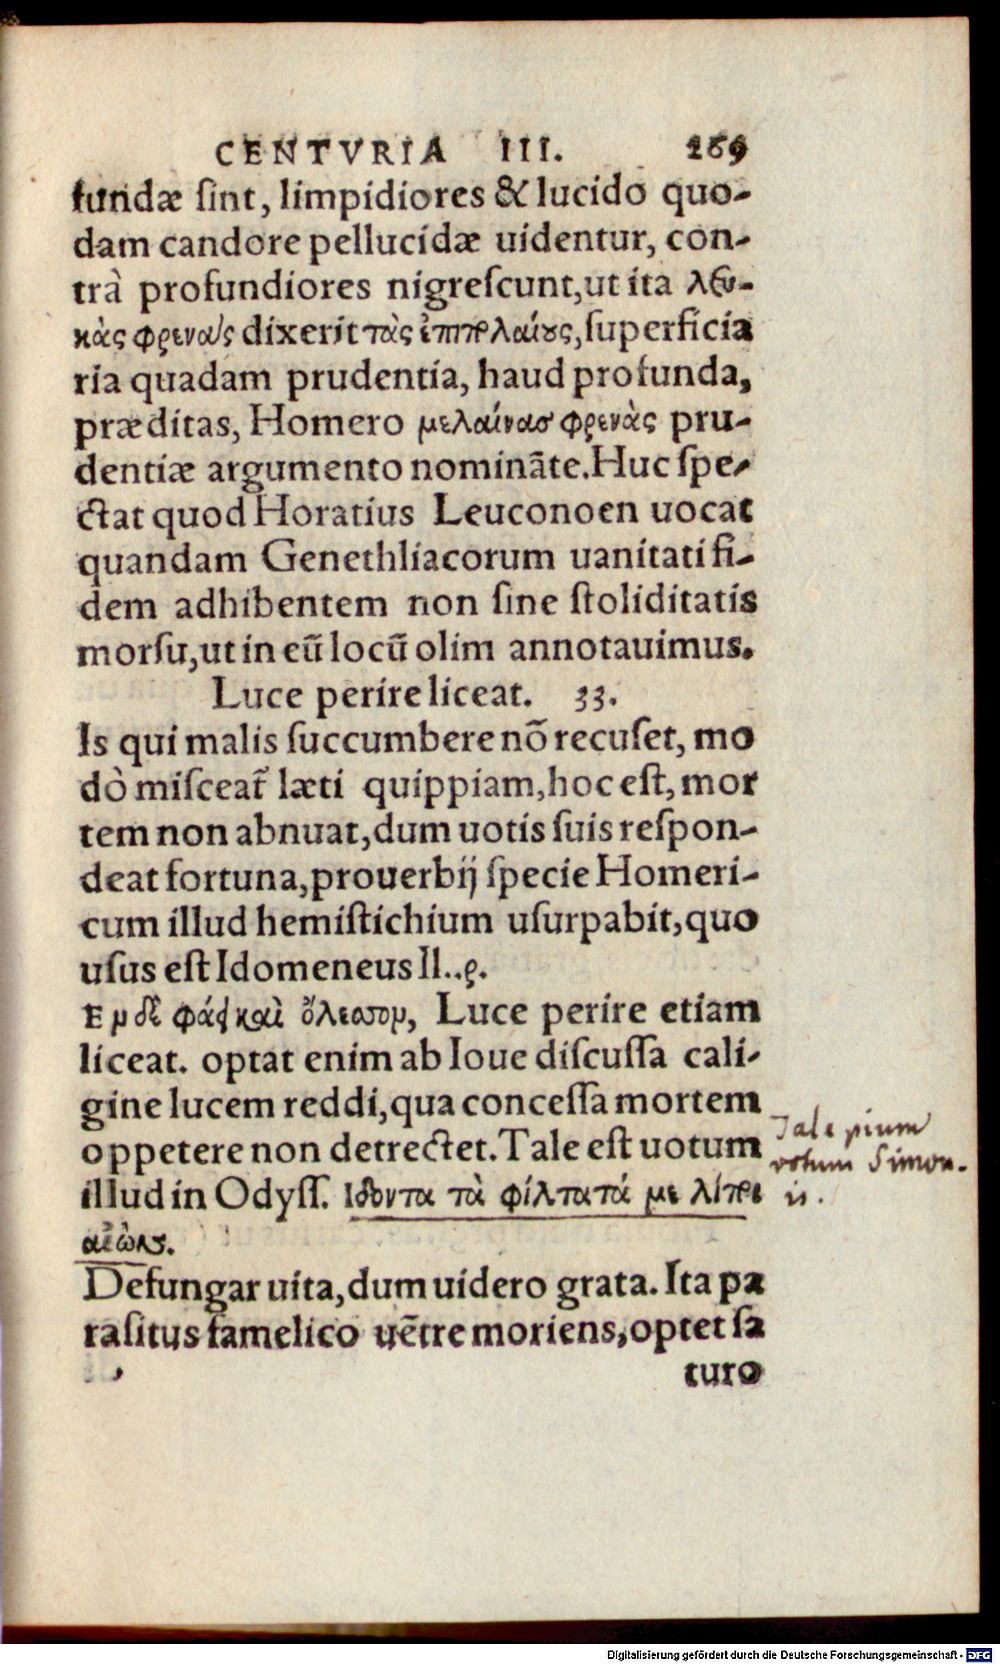 CENTVRIA III. 269
fundæ sint, limpidiores & lucido quo-
dam candore pellucidæ uidentur, con-
trà profundiores nigrescunt, ut ita λευ-
κὰς φρενὰς dixerit τὰς ἐπιπελαίους, superficia
ria quadam prudentia, haud profunda,
præditas, Homero μελαίνασ φρενὰς pru-
dentiæ argumento nomināte. Huc spe-
ctat quod Horatius Leuconoen uocat
quandam Genethliacorum uanitati fi-
dem adhibentem non sine stoliditatis
morsu, ut in eū locū olim annotauimus.
Luce perire liceat. 33.
Is qui malis succumbere nō recuset, mo
dò misceat᷑ læti quippiam, hoc est, mor
tem non abnuat, dum uotis suis respon-
deat fortuna, prouerbij specie Homeri-
cum illud hemistichium usurpabit, quo
usus est Idomeneus Il..ρ.
Εν δὲ φάει καὶ ὄλεσσον, Luce perire etiam
liceat. optat enim ab Ioue discussa cali-
gine lucem reddi, qua concessa mortem
oppetere non detrectet. Tale est uotum
illud in Odyss. Ιδοντα τὰ φίλτατά με λίποι
αἰὼν.
Defungar uita, dum uidero grata. Ita pa
rasitus famelico uētre moriens, optet sa
turo
Tale pium
votum Simon-
is.
Digitalisierung gefördert durch die Deutsche Forschungsgemeinschaft - DFG